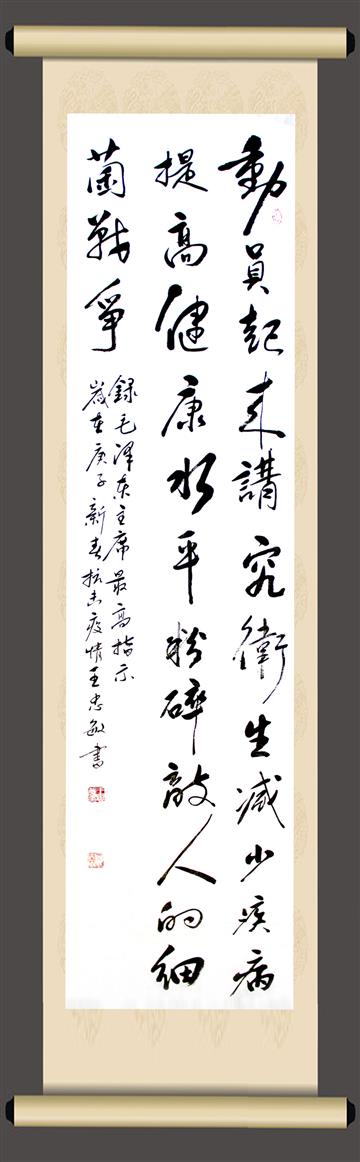 動員起來講究衛生减少疾病
提高健康水平粉碎敵人的细
菌戰爭
録毛澤东主席最高指示
歲在庚子新春抗击疫情王忠敏書